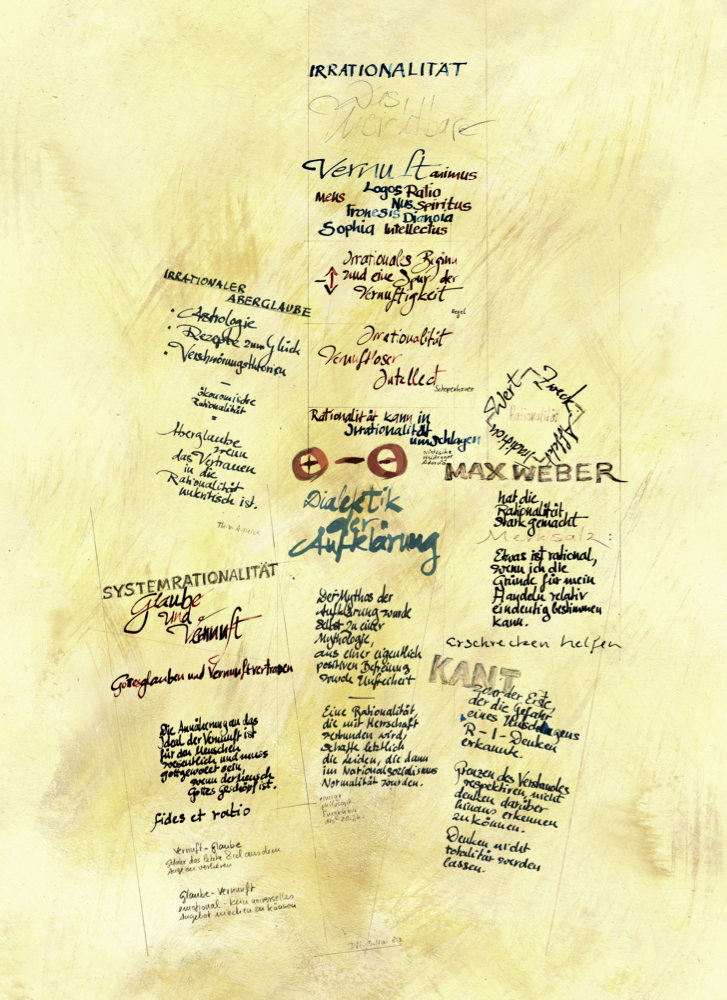 IRRATIONALITÄT
Das
Unsichtbare
Vernunft animus
mens Logos Ratio
Nus Spiritus
Fronesis Dianoia
Sophia Intellectus
Irrationales Beginn
und eine Spur der
Vernuftigkeit
Hegel
Irrationalität
Vernuftloser
Intellect
Schopenhauer
Rationalität kann in
Irrationalität
umschlagen
Nietzsche
Heidegger
Adorno
+ − −
Dialektik
der
Aufklärung
Der Mythos der
Aufklärung wurde
selbst zu einer
Mythologie,
aus einer eigentlich
positiven Befreiung
sowohl Unfreiheit
Eine Rationalität,
die mit Herrschaft
verbunden wird,
schaffe letztlich
die Leiden, die dann
im Nationalsozialismus
Normalität wurden.
IRRATIONALER
ABERGLAUBE
• Astrologie
• Rezepte zum Glück
• Verschwörungstheorien
—
ökonomische
Rationalität
=
Aberglaube
wenn
das Vertrauen
in die
Rationalität
unkritisch ist.
SYSTEMRATIONALITÄT
Glaube
und
Vernunft
Gottesglauben und Vernunftvertrauen
Die Annäherung an das
Ideal der Vernunft ist
für den Menschen
wesentlich und muss
gottgewollt sein,
wenn der Mensch
Gottes Geschöpf ist.
fides et ratio
Vernuft-Glaube
das letzte Ziel aus dem
Auge zu verlieren
Glaube-Vernuft
emotional - kein universelles
Angebot machen zu können
Wert
Zweck
Affekt
Tradition
Rationalität
MAX WEBER
hat die
Rationalität
stark gemacht
Merksatz:
Etwas ist rational,
wenn ich die
Gründe für mein
Handeln relativ
eindeutig bestimmen
kann.
Erschrecken helfen
KANT
war der Erste,
der die Gefahr
eines Umschlagens
R-I-Denken
erkannte.
Grenzen des Verstandes
respektiren, nicht
denken darüber
hinaus erkennen
zu können.
Denken nicht
totalität werden
lassen.